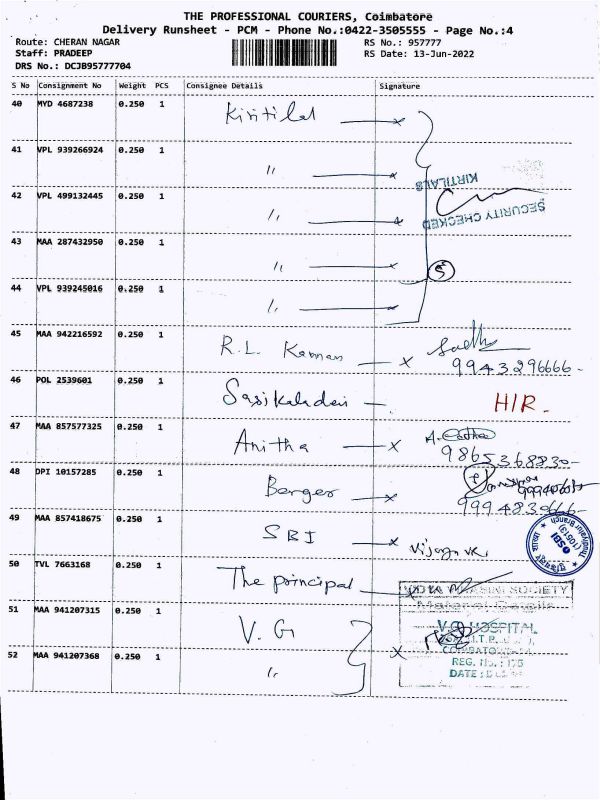 THE PROFESSIONAL COURIERS, Coimbatore
Delivery Runsheet - PCM - Phone No.:0422-3505555 - Page No.:4
Route: CHERAN NAGAR
RS No.: 957777
Staff: PRADEEP
RS Date: 13-Jun-2022
DRS No.: DCJB95777704
S No Consignment No Weight PCS Consignee Details Signature
40 MYD 4687238 0.250 1 Kirtilal
41 VPL 939266924 0.250 1 〃
KIRTILALS
42 VPL 499132445 0.250 1 〃
SECURITY CHECKED
43 MAA 287432950 0.250 1 〃
5
44 VPL 939245016 0.250 1 〃
45 MAA 942216592 0.250 1 R.L. Kannan
9943296666
46 POL 2539601 0.250 1 Sasikaladevi H/R.
47 MAA 857577325 0.250 1 Anitha
9865368830
48 DPI 10157285 0.250 1 Berger
9994839666
49 MAA 857418675 0.250 1 SBI
SBI
50 TVL 7663168 0.250 1 The principal
SOCIETY
51 MAA 941207315 0.250 1 V.G
V.G HOSPITAL
52 MAA 941207368 0.250 1 〃
REG. No.:
DATE :